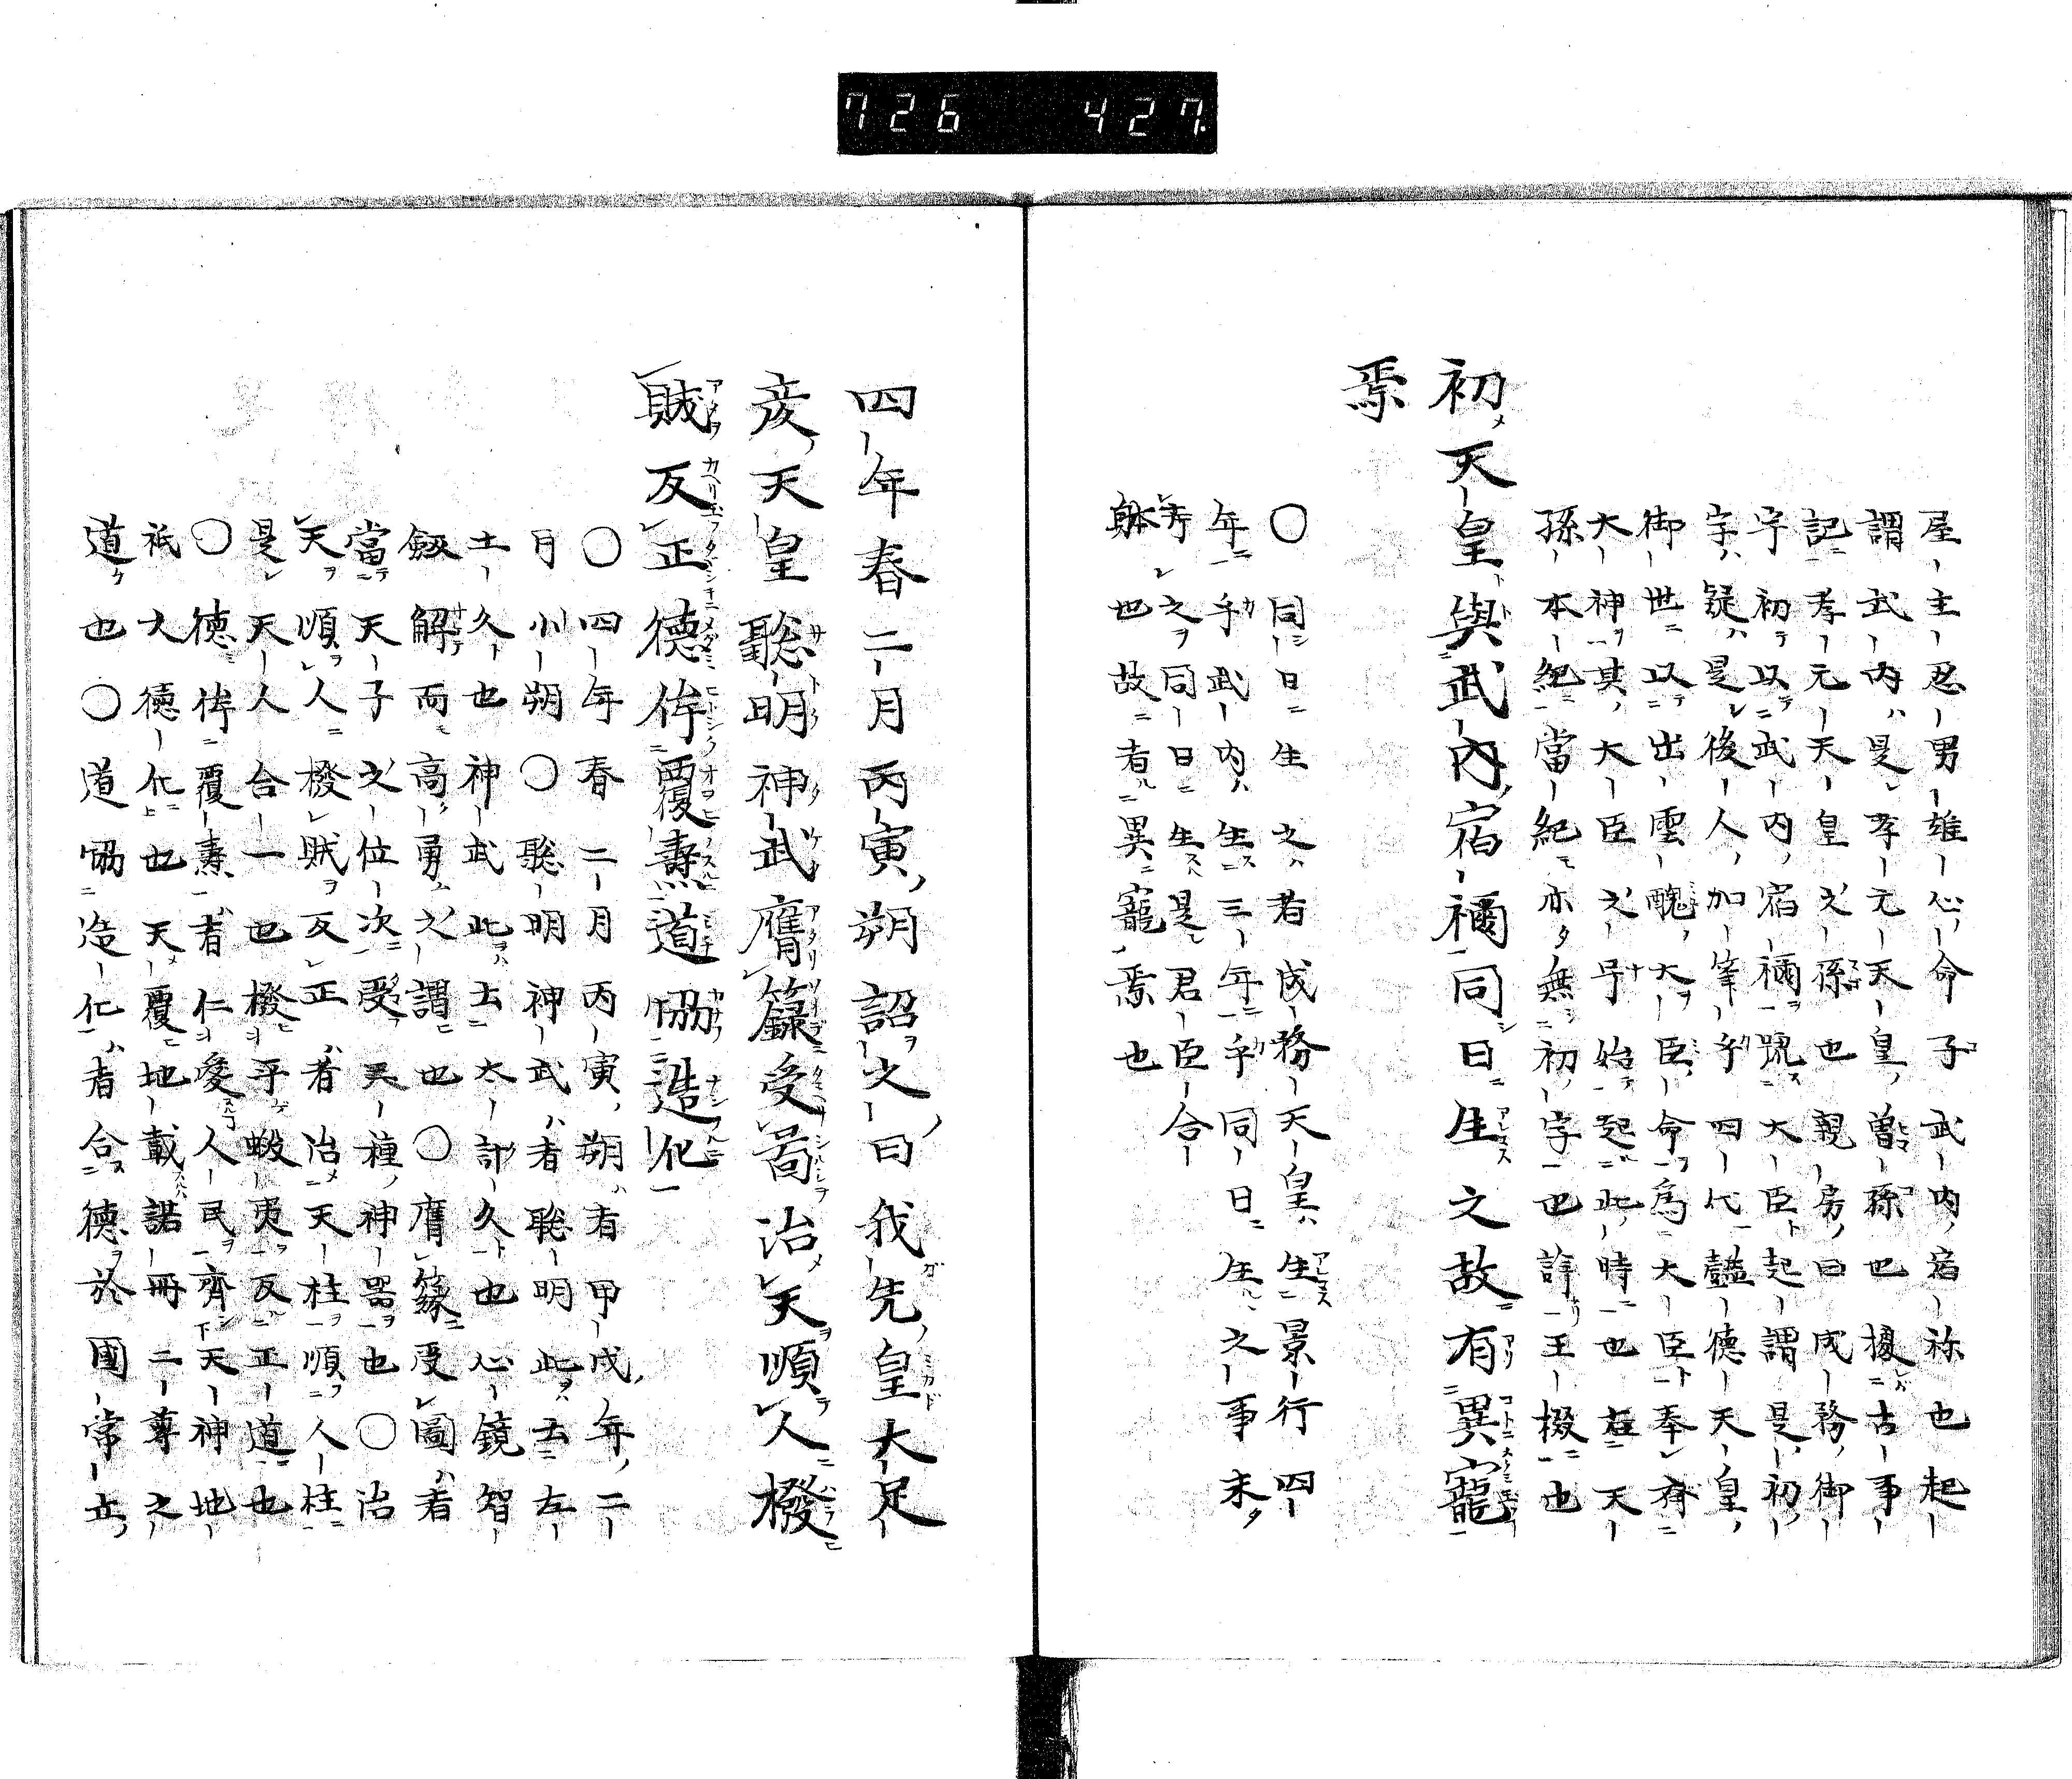 726 427.
屋主忍男雄心命子武内宿祢也起
謂武内是孝元天皇曽孫也據古事
記孝元天皇之孫也親房曰成務御
宇初以武内宿禰號大臣起謂是初
字疑是後人加筆乎四代懿德天皇
御世以出雲醜大臣命為大臣奉齋
大神其大臣之号始起此時也在天
孫本紀當紀亦無初字也詳王掇也
初天皇與武内宿禰同日生之故有異寵
焉
〇同日生之者成務天皇生景行四
年乎武内生三年乎同日生之事未
考之同日生是君臣合
躰也故者異寵焉也
四年春二月丙寅朔詔之曰我先皇大足
彦天皇聡明神武膺籙受啚治天順人撥
賊反正德侔覆燾道協造化
〇四年春二月丙寅朔者甲戌年二
月小朔〇聡明神武者聡明此云左
土久也神武此云太計久也心鏡智
劔解而高勇之謂也〇膺籙受圖者
當天子之位次受天種神器也〇治
天順人撥賊反正者治天柱順人柱
是天人合一也撥平蝦夷反正道也
〇德侔覆燾者仁愛人民齊天神地
祇大德化也天覆地載諾冊二尊之
道也〇道協造化者合德於國常立